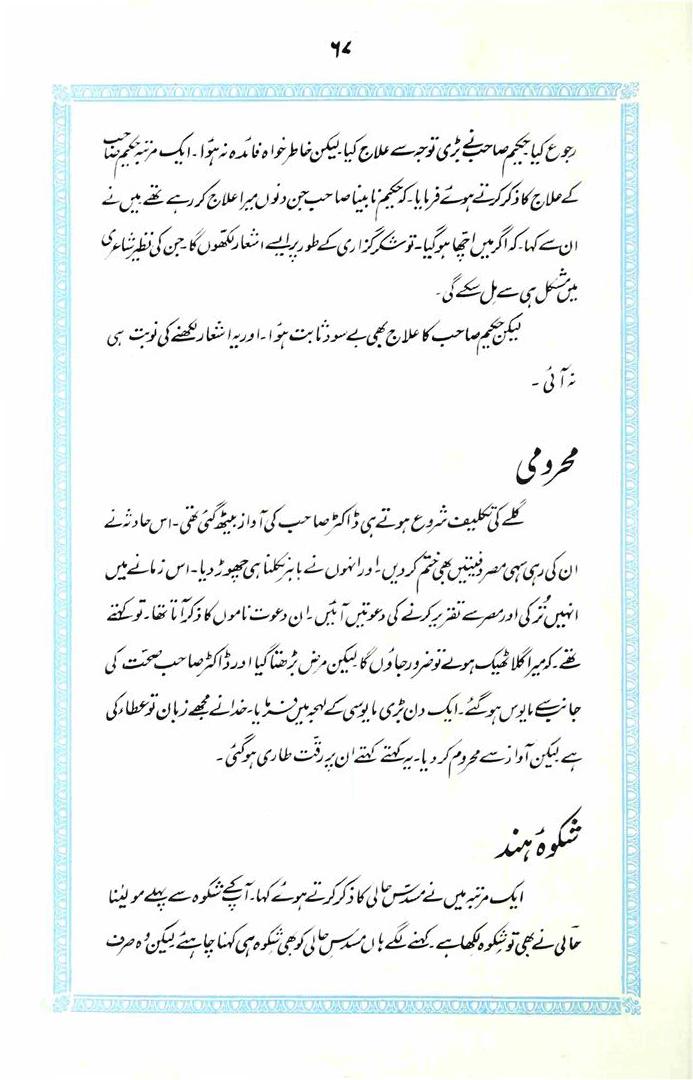 ۶۷
رجوع کیا۔ حکیم صاحب نے بڑی توجہ سے علاج کیا۔ لیکن خاطر خواہ فائدہ نہ ہوا۔ ایک مرتبہ حکیم صاحب
کے علاج کا ذکر کرتے ہوئے فرمایا۔ کہ حکیم نابینا صاحب جن دنوں میرا علاج کر رہے تھے میں نے
ان سے کہا۔ کہ اگر میں اچھا ہوگیا۔ تو شکر گزاری کے طور پر ایسے اشعار لکھوں گا۔ جن کی نظیر شاعری
میں مشکل ہی سے مل سکے گی۔
لیکن حکیم صاحب کا علاج بھی بے سود ثابت ہوا۔ اور یہ اشعار لکھنے کی نوبت ہی
نہ آئی۔
محرومی
گلے کی تکلیف شروع ہوتے ہی ڈاکٹر صاحب کی آواز بیٹھ گئی تھی۔ اس حادثہ نے
ان کی رہی سہی مصروفیتیں بھی ختم کر دیں۔ اور انہوں نے باہر نکلنا ہی چھوڑ دیا۔ اس زمانے میں
انہیں ٹرکی اور مصر سے تقریر کرنے کی دعوتیں آئیں۔ ان دعوت ناموں کا ذکر آتا تھا۔ تو کہتے
تھے۔ کہ میرا گلا ٹھیک ہولے تو ضرور جاؤں گا لیکن مرض بڑھتا گیا اور ڈاکٹر صاحب صحت کی
جانب سے مایوس ہو گئے۔ ایک دن بڑی مایوسی کے لہجہ میں فرمایا۔ خدا نے مجھے زبان تو عطاء کی
ہے لیکن آواز سے محروم کر دیا۔ یہ کہتے کہتے ان پر رقت طاری ہوگئی۔
شکوہٴ ہند
ایک مرتبہ میں نے مسدس حالی کا ذکر کرتے ہوئے کہا۔ آپ کے شکوہ سے پہلے مولینا
حالی نے بھی تو شکوہ لکھا ہے۔ کہنے لگے ہاں مسدس حالی کو بھی شکوہ ہی کہنا چاہئے لیکن وہ صرف